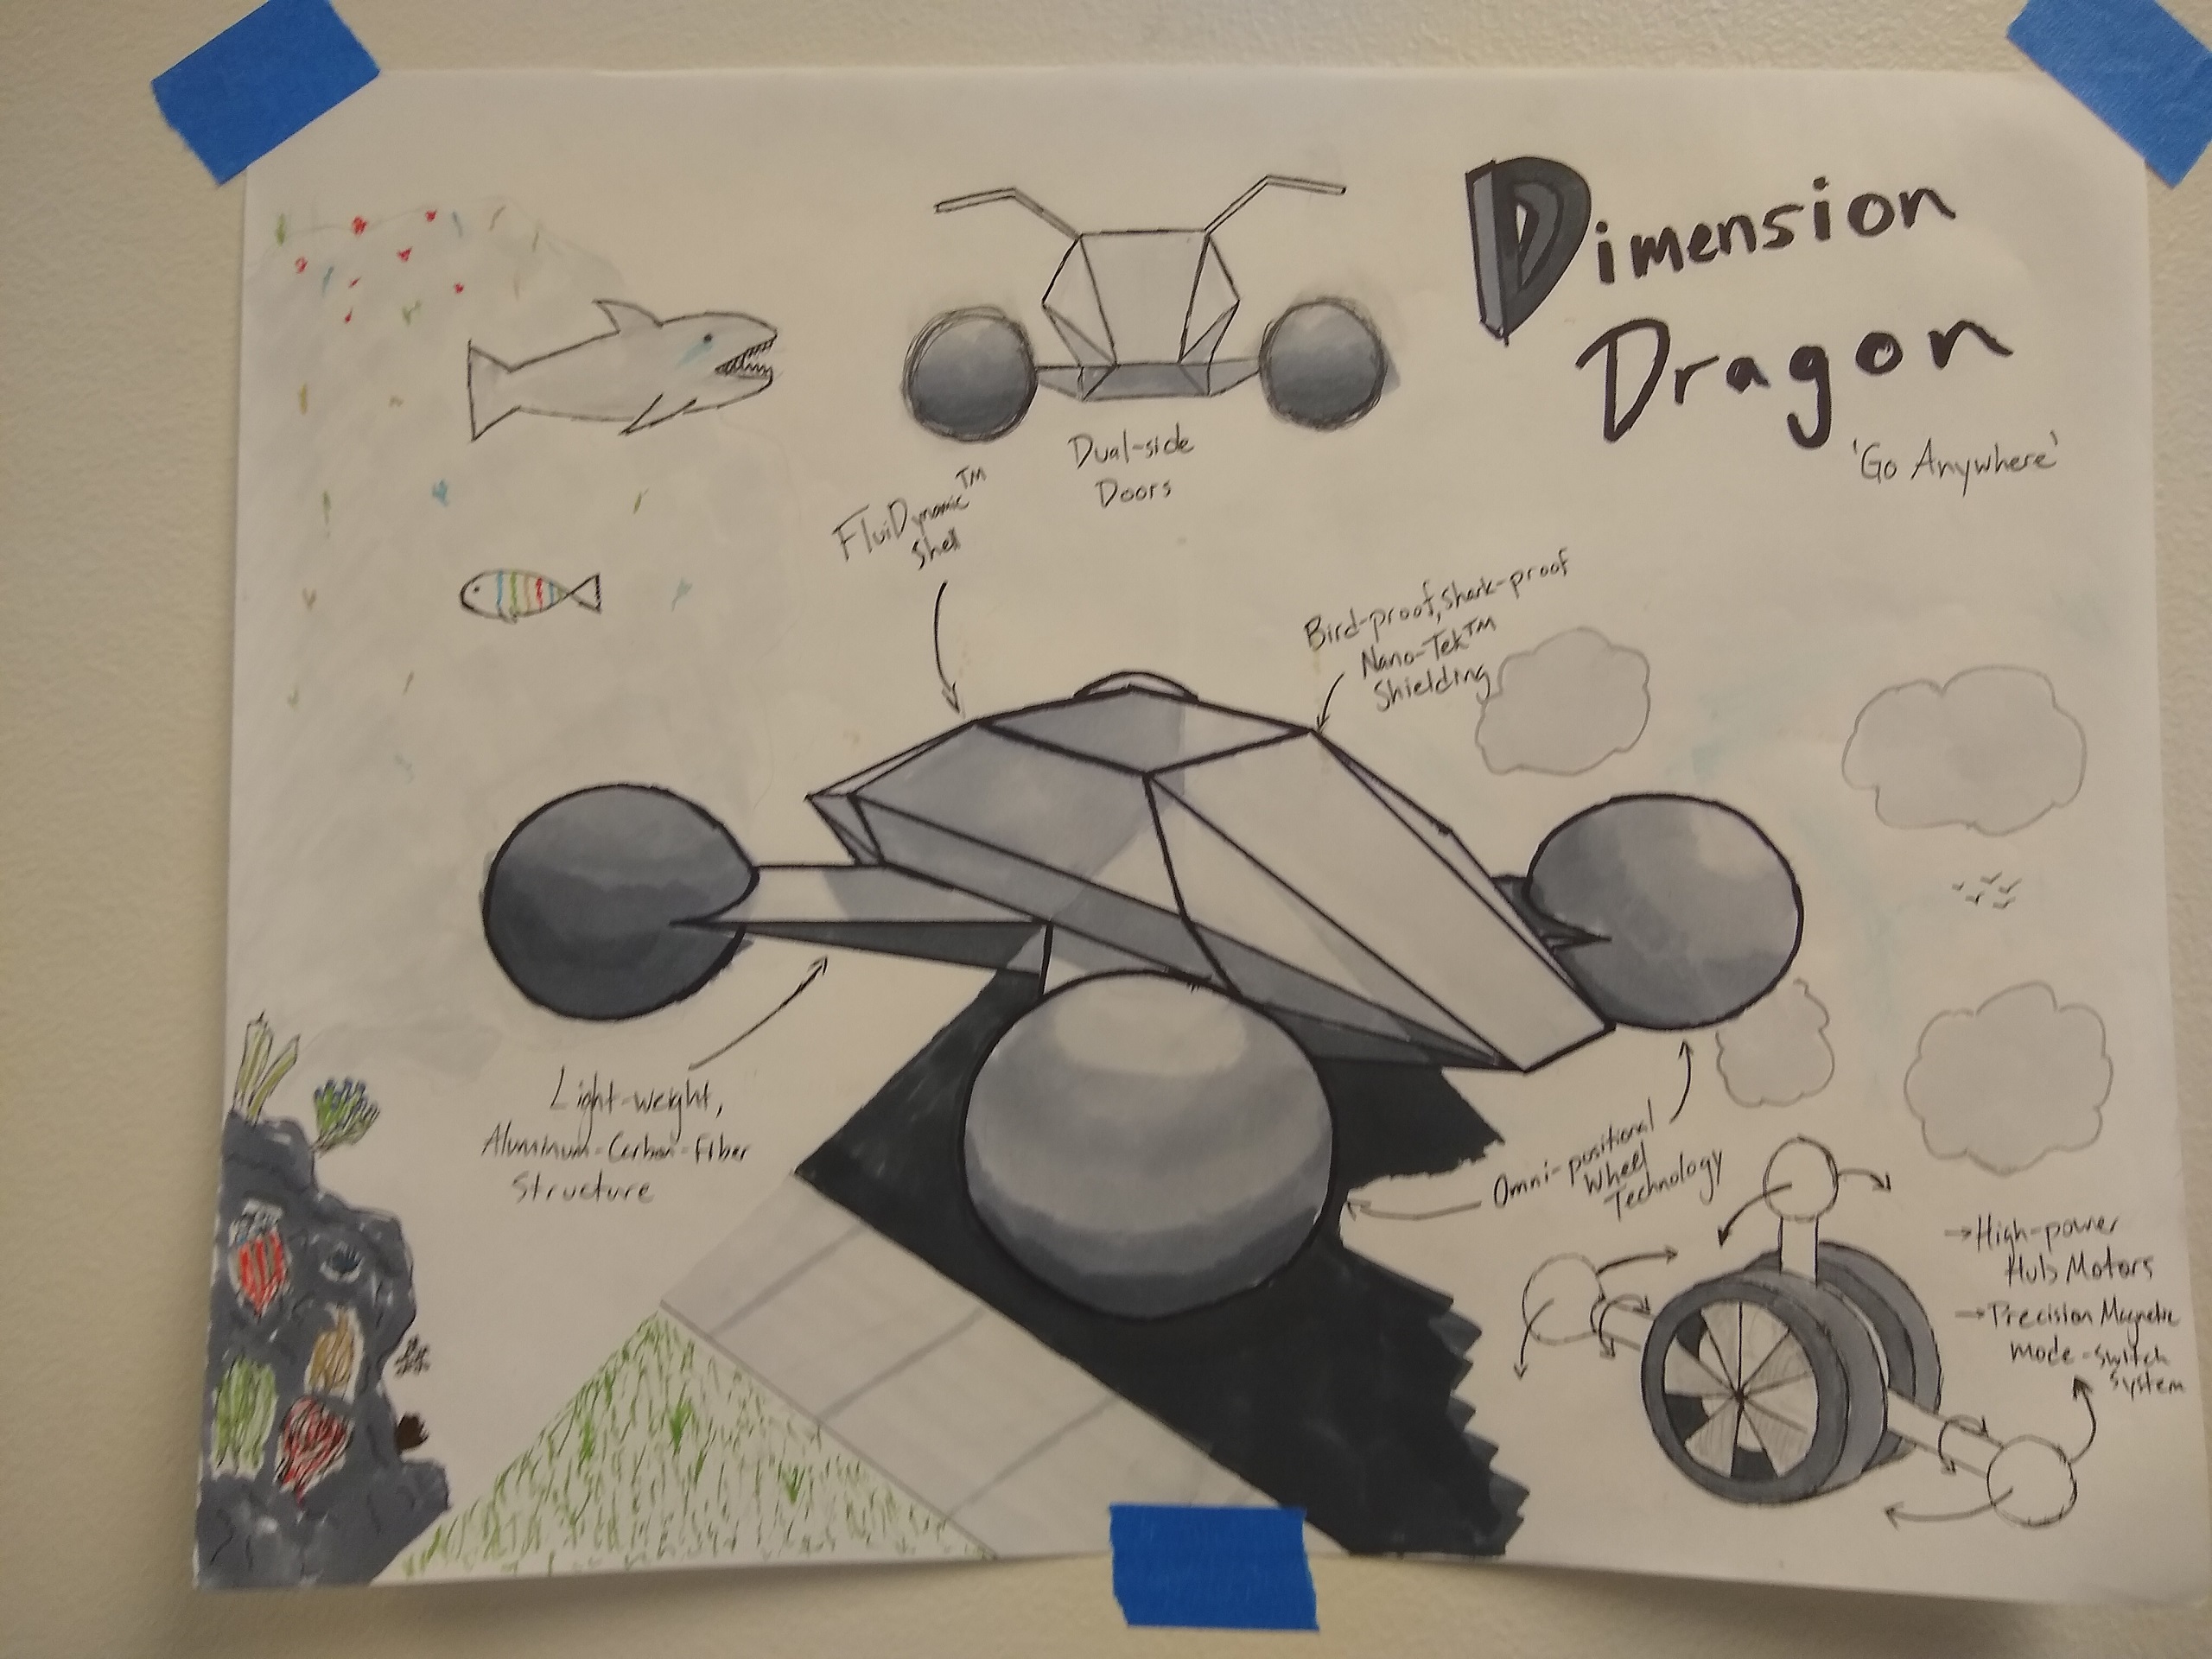 Dimension
Dragon
'Go Anywhere'
Dual-side
Doors
FluiDynamic™
Shell
Bird-proof, Shark-proof
Nano-Tek™
Shielding
Light-weight,
Aluminum-Carbon-Fiber
Structure
Omni-positional
Wheel
Technology
→High-power
Hub Motors
→Precision Magnetic
mode-switch
system